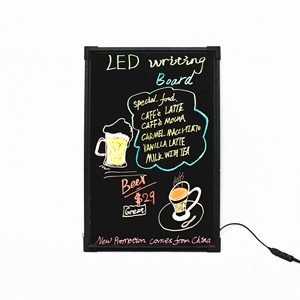 LED writing
Board
special food
CAFFE LATTE
CAFFE MOCHA
CARMEL MACCHIATO
VANILLA LATTE
MILK WITH TEA
Beer
$29
Great
New Promotion comes from China